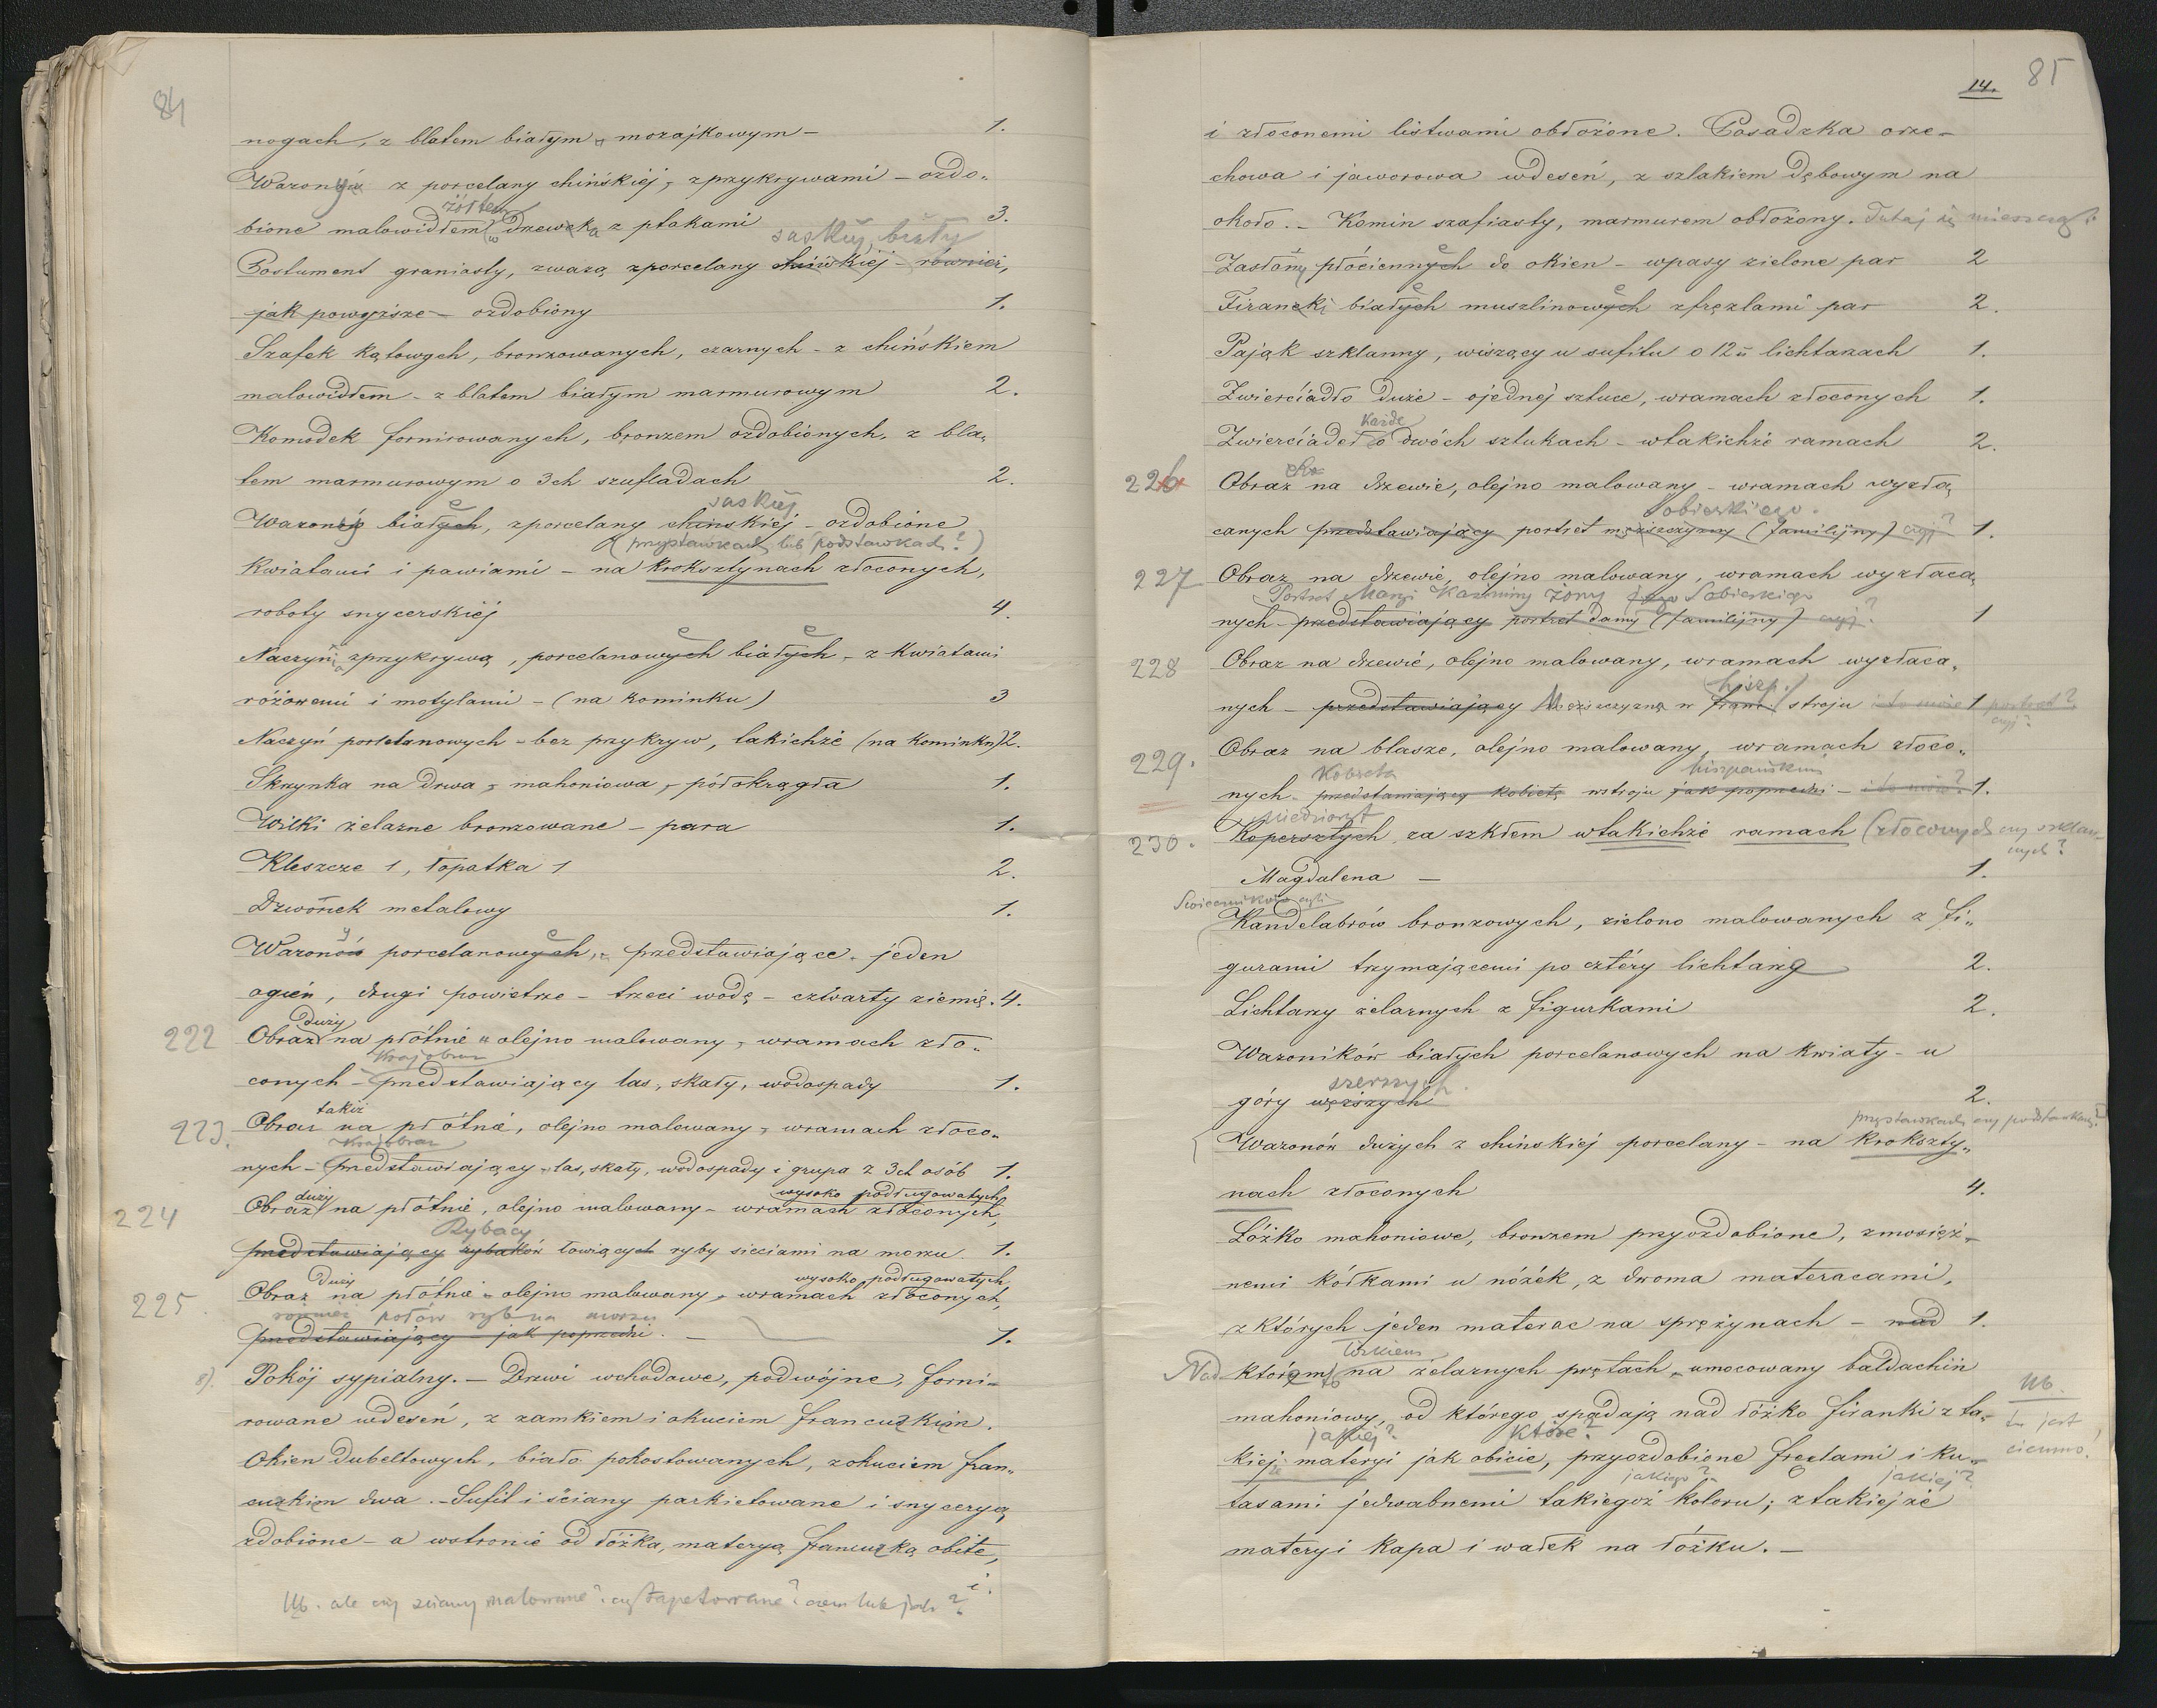 84
nogach, z blatem białym mozajkowym – 1.
Wazony z porcelany chińskiej, z przykrywami – ozdo-
żółtem
bione malowidłem w drzewka z ptakami 3.
saskiéj, biały
Postument graniasty, zwazą zporcelany chińskiej – również,
jak powyższe – ozdobiony 1.
Szafek kątowych, bronzowanych, czarnych – z chińskiem
malowidłem – z blatem białym marmurowym 2.
Komodek fornirowanych, bronzem ozdobionych, z bla-
tem marmurowym o 3ch szufladach 2.
saskiéj
Wazonów białych, zporcelany chinskiej – ozdobione
(przystawkach lub podstawkach?)
Kwiatami i pawiami – na Kroksztynach złoconych,
roboty snycerskiéj 4.
Naczyń zprzykrywą, porcelanowych białych, z Kwiatami
różowemi i motylami – (na kominku) 3
Naczyń porcelanowych – bez przykryw, takichże (na Kominku) 2.
Skrzynka na drwa, mahoniowa, półokrągła 1.
Wilki żelazne bronzowane – para 1.
Kleszcze 1, łopatka 1 2.
Dzwonek metalowy 1.
Wazonów porcelanowych, – przedstawiające – jeden
ogień, drugi powietrze – trzeci wodę – czwarty ziemię. 4.
duży
222 Obraz na płótnie olejno malowany, wramach zło-
Krajobraz
conych – przedstawiający las, skały, wodospady 1.
takiż
223. Obraz na płótnie, olejno malowany, wramach złoco-
Krajobraz
nych – przedstawiający las, skały, wodospady i grupa z 3ch osób 1.
duży wysoko podługowatych
224 Obraz na płótnie, olejno malowany – wramach złoconych,
Rybacy
przedstawiający rybaków łowiących ryby sieciami na morzu. 1.
duży wysoko podługowatych
225. Obraz na płótnie – olejno malowany, wramach złoconych,
również połów ryb na morzu
przedstawiający – jak poprzedni. – 1.
8). Pokój sypialny. – Drzwi wchodowe, podwójne, forni-
rowane wdeseń, z zamkiem i okuciem francuzkiem.
Okien dubeltowych, biało pokostowanych, zokuciem fran-
cuzkiem dwa. – Sufit i ściany parkietowane i snyceryą
zdobione – a wstronie od łóżka, materyą francuzką obite,
i.
Nb. ale czy ściany malowane? czy tapetowane? czem lub jak?
14. 85
i złoconemi listwami obłożone. Posadzka orze-
chowa i jaworowa wdeseń, z szlakiem dębowym na
około. – Komin szafiasty, marmurem obłożony. Tutaj się mieszczą:
Zasłony płóciennych do okien – wpasy zielone par 2
Firanki białych muszlinowych zfręzlami par 2.
Pająk szklanny, wiszący u sufitu o 12u lichtarzach 1.
Zwierciadło duże – ojednej sztuce, wramach złoconych 1.
Każde
Zwierciadeł o dwóch sztukach – wtakichże ramach 2.
226 Obraz na drzewie, olejno malowany – wramach wyzła-
Sobieskiego.
canych przedstawiający portret mężczyzny (familijny) czyj? 1.
227 Obraz na drzewie, olejno malowany, wramach wyzłaca-
Portret Maryi Kazimiry żony Jego Sobieskiego
nych – przedstawiający portret damy (familijny) czyj? 1
228 Obraz na drzewie, olejno malowany, wramach wyzłaca-
hiszp.
nych – przedstawiający Mężczyzna w franc. stroju i to może 1 portret? czyj?
229. Obraz na blasze, olejno malowany, wramach złoco-
Kobieta hiszpańskim
nych – przedstawiający kobietę wstroju jak poprzedni – 1.
Miedzioryt
230. Kopersztych za szkłem wtakichże ramach (złoconych czy szklan-
nych?
Magdalena – 1.
Świeczników czyli
Kandelabrów bronzowych, zielono malowanych z fi-
gurami trzymającemi po cztéry lichtarze 2.
Lichtarzy żelaznych z figurkami 2.
Wazoników białych porcelanowych na kwiaty – u
szerszych.
góry węższych 2.
przystawkach czy podstawkach?
Wazonów dużych z chińskiej porcelany – na Kroksty-
nach złoconych 4.
Łóżko mahoniowe, bronzem przyozdobione, zmosięż-
nemi kółkami u nóżek, z dwoma materacami,
z których jeden materac na sprężynach – nad 1.
Nad którem to na żelaznych prętach, umocowany baldachin
mahoniowy, od którego spadają nad łóżko firanki z ta-
Nb.
tu jest
ciemno!
jakiéj? które?
kiej-że materyi jak obicie, przyozdobione frezlami i ku-
jakiego? jakiéj?
tasami jedwabnemi takiegoż koloru; ztakiejże
materyi Kapa i wałek na łóżku. –